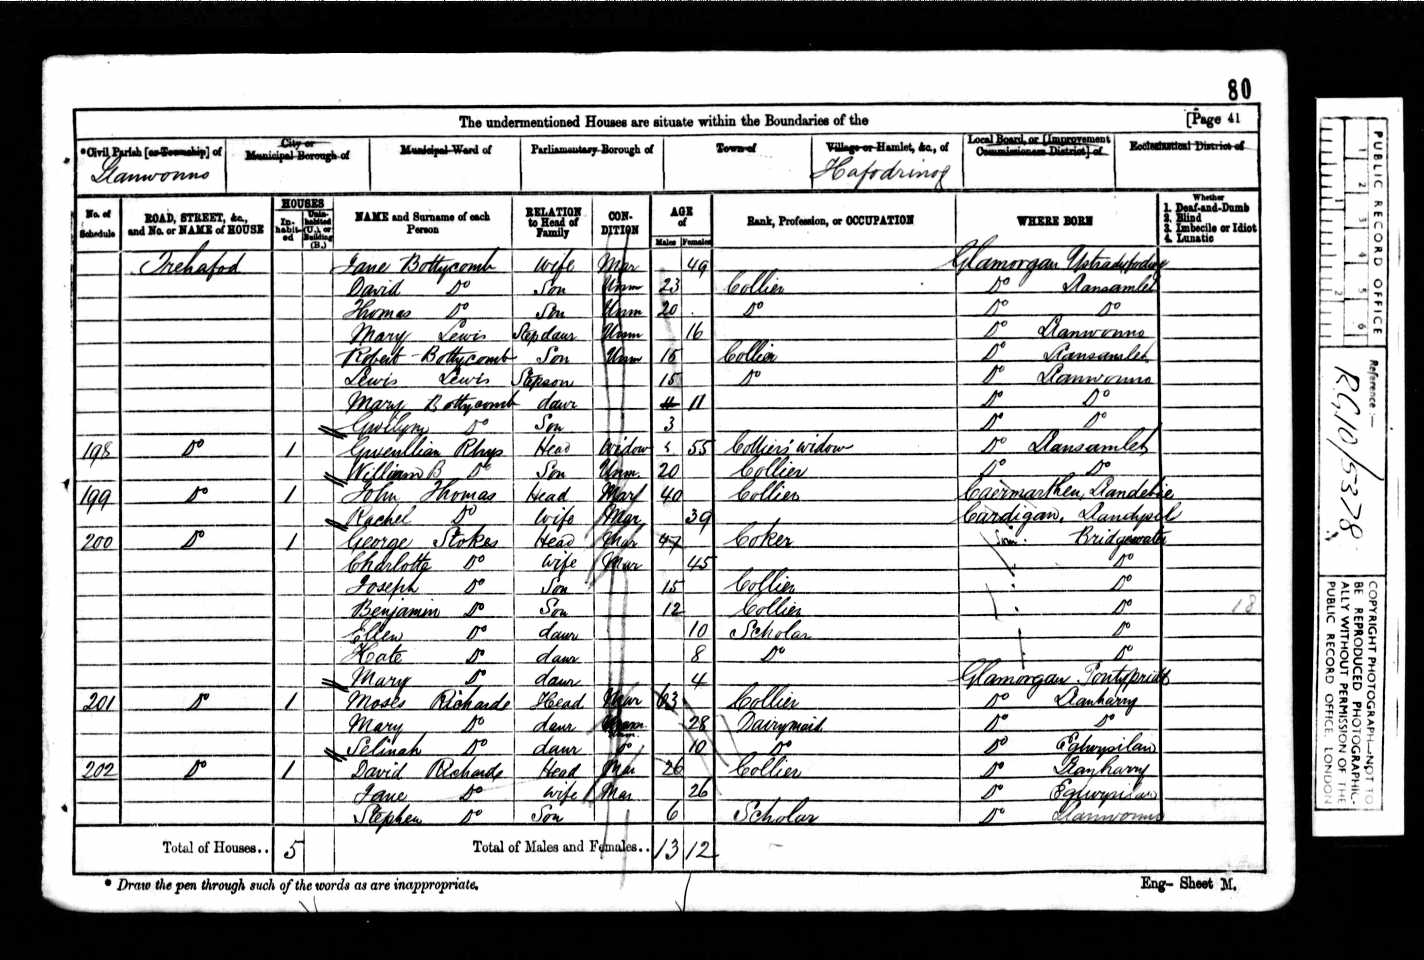 80
The undermentioned Houses are situate within the Boundaries of the [Page 41
*Civil Parish [or Township] of City or Municipal Borough of Municipal Ward of Parliamentary Borough of Town of Village or Hamlet, &c., of Local Board, or [Improvement Commissioners District] of Ecclesiastical District of
Llanwonno Hafodrinog
No. of Schedule ROAD, STREET, &c., and No. or NAME of HOUSE HOUSES In-habit-ed Unin-habited (U.), or Building (B.) NAME and Surname of each Person RELATION to Head of Family CON-DITION AGE of Males Females Rank, Profession, or OCCUPATION WHERE BORN Whether 1. Deaf-and-Dumb 2. Blind 3. Imbecile or Idiot 4. Lunatic
Trehafod Jane Bottycomb Wife Mar 49 Glamorgan Ystradyfodwg
David Do Son Unm 23 Collier Do Llansamlet
Thomas Do Son Unm 20 Do Do Do
Mary Lewis Stepdaur Unm 16 Do Llanwonno
Robert Bottycomb Son Unm 15 Collier Do Llansamlet
Lewis Lewis Stepson 15 Do Do Llanwonno
Mary Bottycomb daur 11 11 Do Do
Gwilym Do Son 3 Do Do
198 Do 1 Gwenllian Rhys Head Widow 55 Colliers' widow Do Llansamlet
William B Do Son Unm. 20 Collier Do Do
199 Do 1 John Thomas Head Mar 40 Collier Caermarthen, Llandebie
Rachel Do Wife Mar 39 Cardigan, Llandysil
200 Do 1 George Stokes Head Mar 47 Coker Som. Bridgewater
Charlotte Do Wife Mar 45 Do
Joseph Do Son 15 Collier Do
Benjamin Do Son 12 Collier Do 18
Ellen Do daur 10 Scholar Do
Kate Do daur 8 Do Do
Mary Do daur 4 Glamorgan Pontypridd
201 Do 1 Moses Richards Head Mar 63 Collier Do Llanharry
Mary Do daur Unm 28 Dairymaid Do Do
Selinah Do daur Do 10 Do Do Eglwysilan
202 Do 1 David Richards Head Mar 26 Collier Do Llanharry
Jane Do Wife Mar 26 Do Eglwysilan
Stephen Do Son 6 Scholar Do Llanwonno
Total of Houses.. 5 Total of Males and Females.. 13 12
* Draw the pen through such of the words as are inappropriate.
Eng- Sheet M.
PUBLIC RECORD OFFICE
1 2 3 4 5 6
1 2
Reference:-
RG10/5378
COPYRIGHT PHOTOGRAPH—NOT TO BE REPRODUCED PHOTOGRAPHIC-ALLY WITHOUT PERMISSION OF THE PUBLIC RECORD OFFICE, LONDON